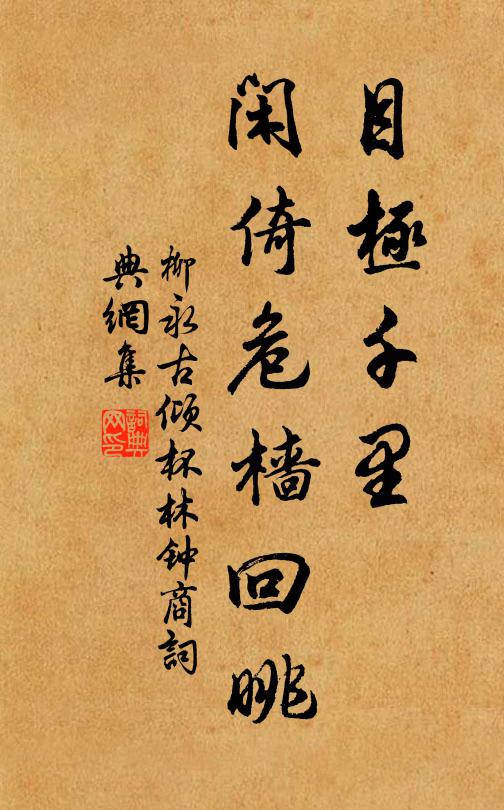 目極千里
閑倚危檣回眺
柳永古傾杯林钟商詞
典網集
詞典网印